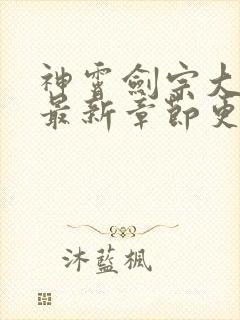 神霄劍宗大
最新章節更
沐藍楓